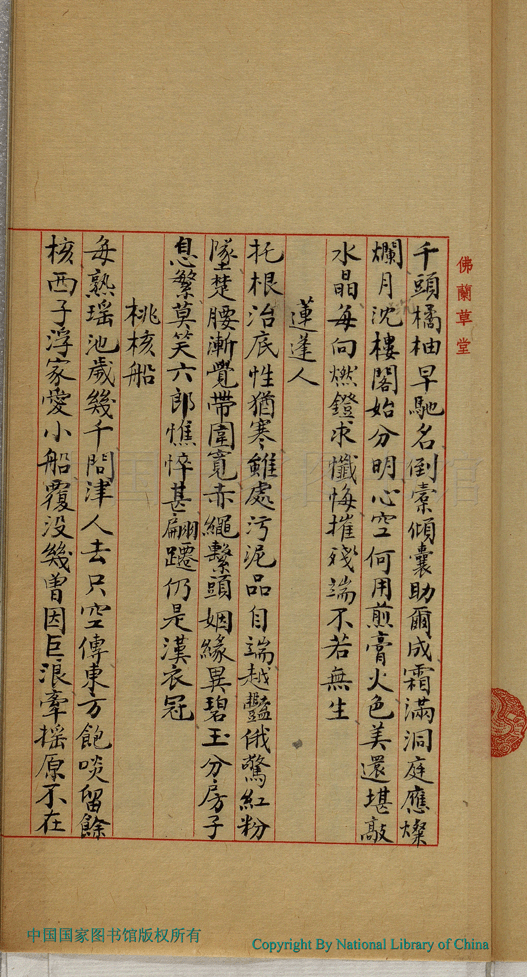 佛蘭草堂
千頭橘柚早馳名倒橐傾囊助爾成霜滿洞庭應燦
爛月沈樓閣始分明心空何用煎膏火色美還堪敵
水晶每向燃鐙求懺悔摧殘端不若無生
蓮蓬人
托根治底性猶寒雖處污泥品自端越豔俄驚紅粉
墜楚腰漸覺帶圍寬赤繩繫頭姻緣異碧玉分房子
息繁莫笑六郎憔悴甚翩躚仍是漢衣冠
桃核船
每熟瑶池歲幾千問津人去只空傳東方飽啖留餘
核西子浮家愛小船覆没幾曾因巨浪牽摇原不在
中国国家图书馆版权所有
Copyright By National Library of China